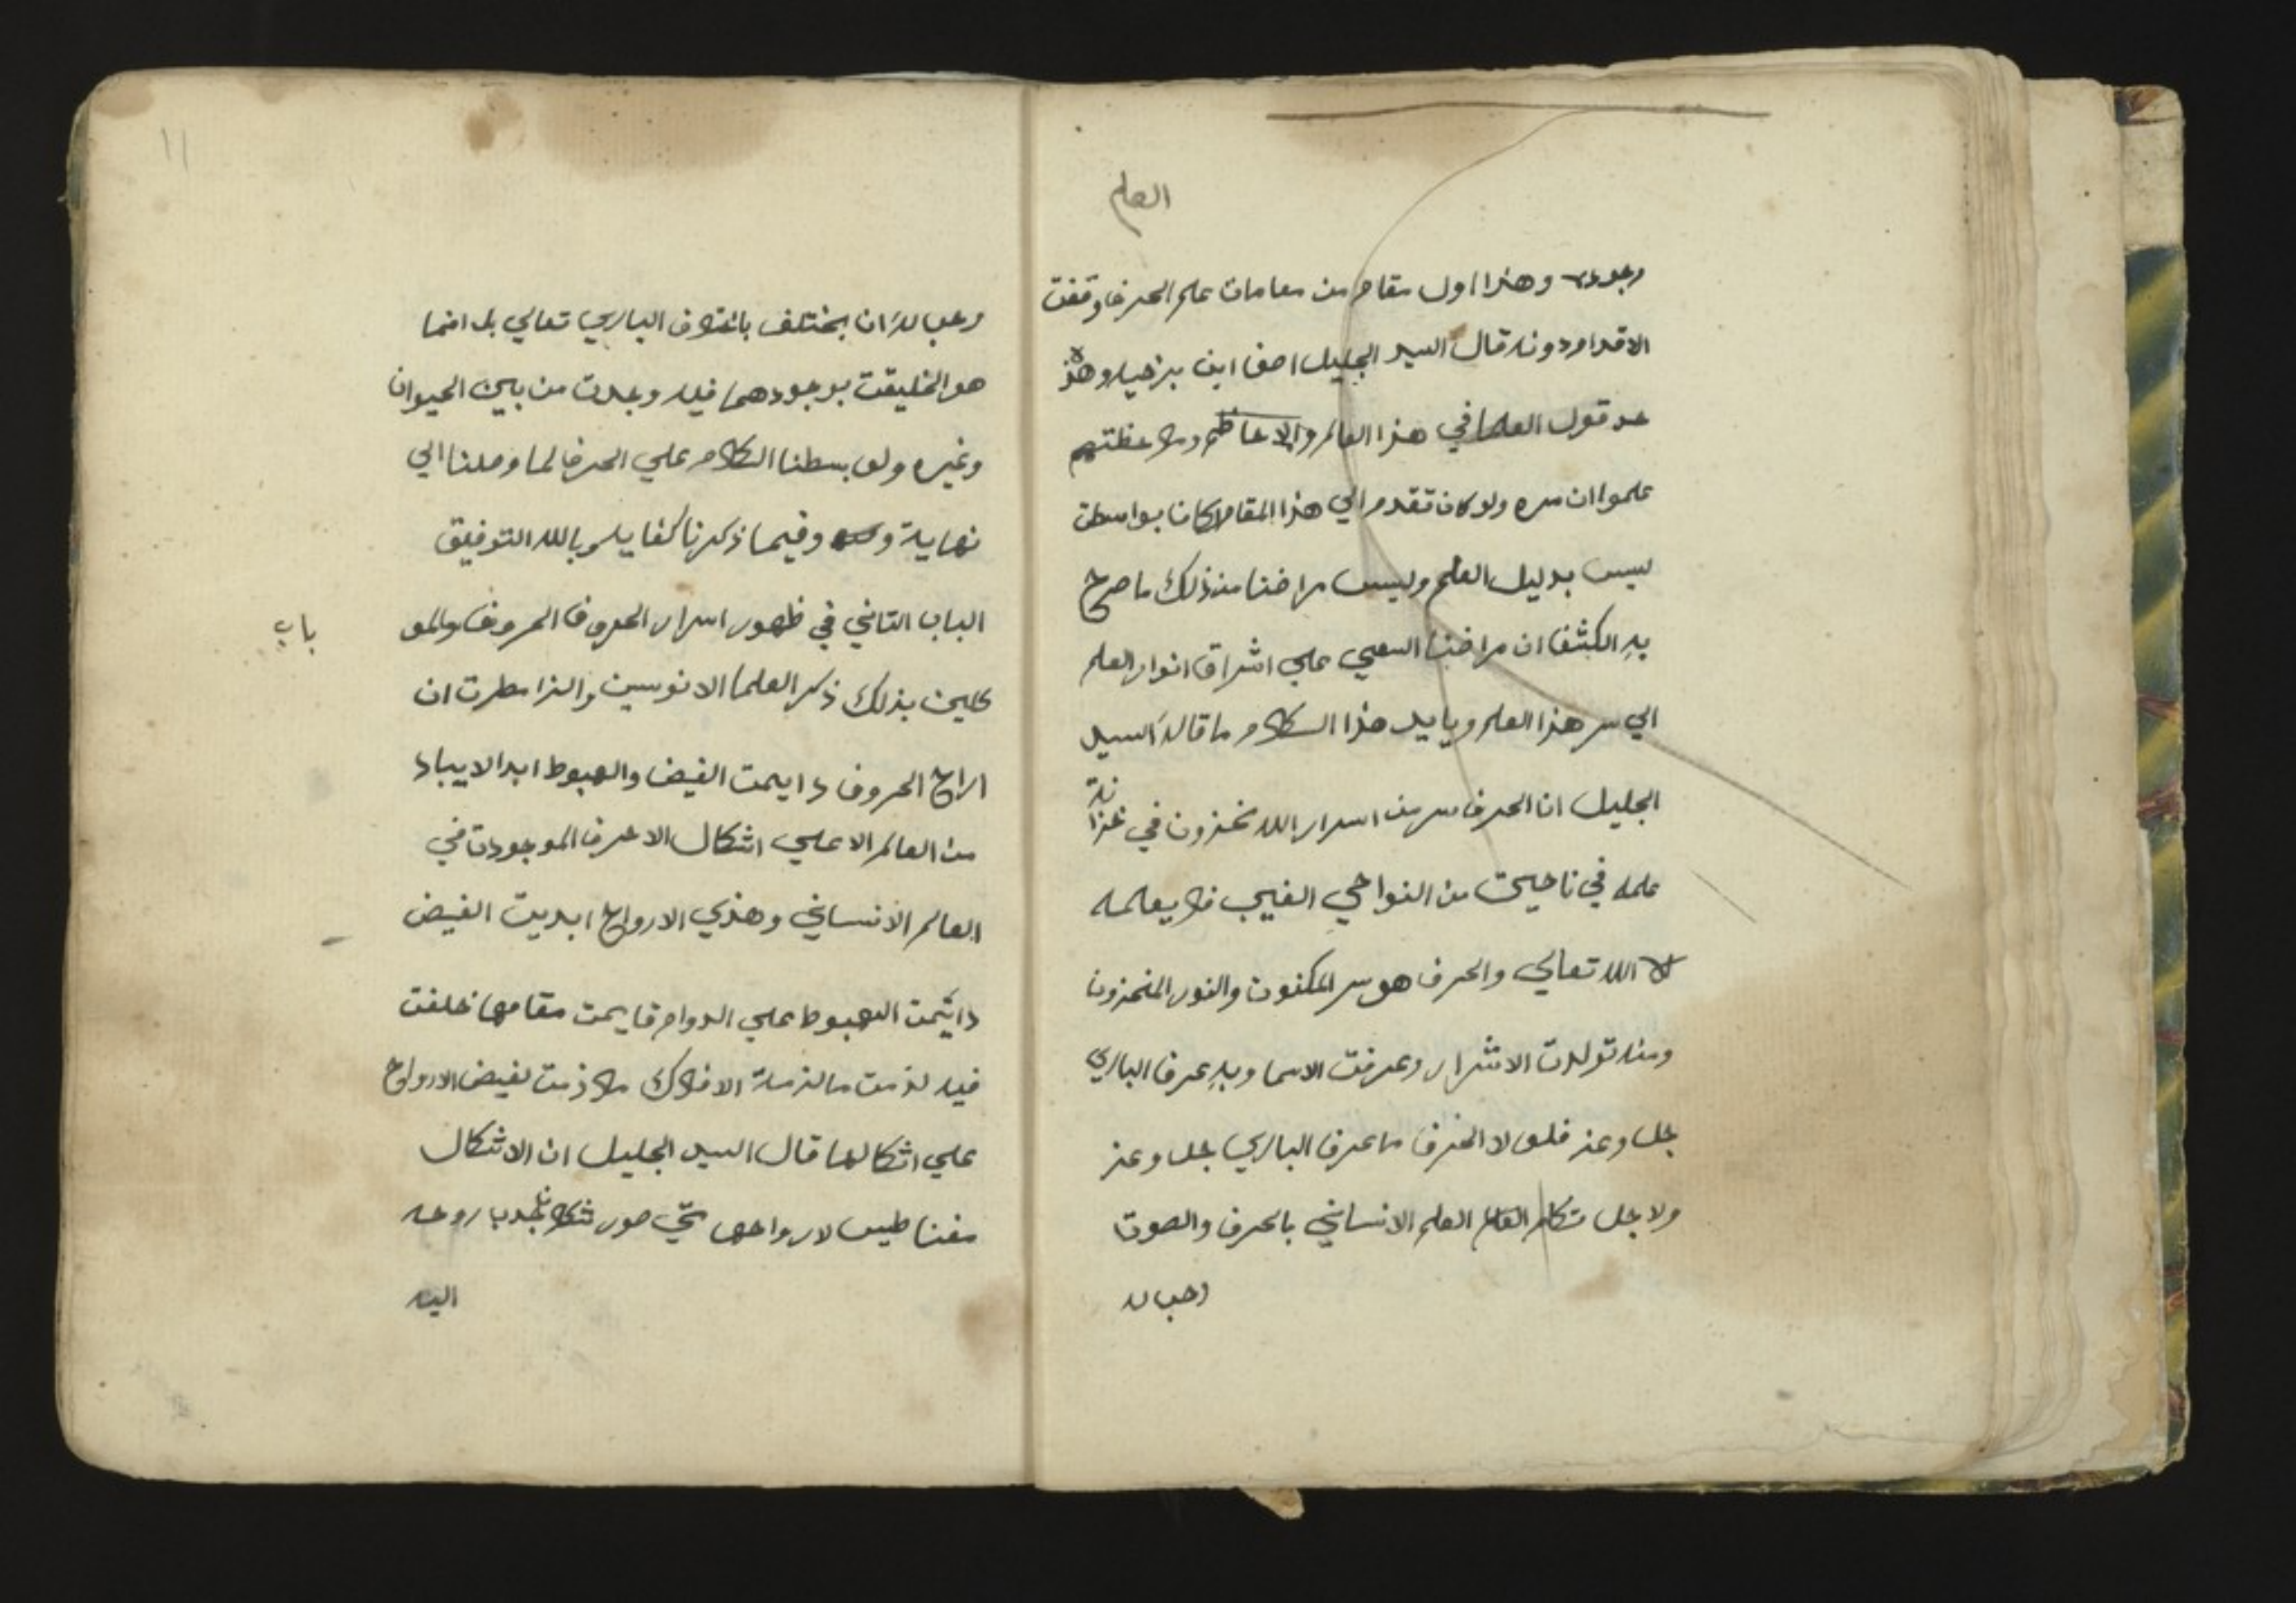 العلم
وجوده وهذا اول مقام من مقامات علم الحرف وقفت
الاقدام دونه قال السيد الجليل اصف ابن برخيا وهذه
عد قول العلما في هذا العالم والاعاظم
علموا ان سره ولو كان تقدم الي هذا المقام لكان بواسطت
ليس بدليل العلم وليس مراضنا من ذلك ما صرح
به الكشف ان مراضنا السعي علي اشراق انوار العلم
الي سر هذا العلم ويايد هذا الكلام ما قاله السيد
الجليل ان الحرف سر من اسرار الله مخزون في خزانة
علمه في ناحيت من النواحي الغيب فلا يعلمه
الا الله تعالي والحرف هو سر المكنون والنور المخزون
ومنه تولدت الاشرار وعرفت الاسما وبه عرف الباري
جل وعز فلو لا الحرف ما عرف الباري جل وعز
ولاجل تكلم العالم العلم الانساني بالحرف والصوت
وجب له
١١
وجب له ان يختلف باختلاف الباري تعالي بل انما
هو الخليقت بوجودهما فيه وجدت من بين الحيوان
وغيره ولو بسطنا الكلام علي الحرف لما وصلنا الي
نهاية وفيما ذكرنا كفايه وبالله التوفيق
باب
الباب التاني في ظهور اسرار الحروف الحروف والمو
كلين بذلك ذكر العلما الانوسين والذامطرت ان
اراح الحروف دايمت الفيض والهبوط ابد الايباد
من العالم الاعلي اشكال الاحرف الموجودت في
العالم الانساني وهذي الارواح ابديت الفيض
دايمت الهبوط علي الدوام قايمت مقامها خلفت
فيه لزمت مالزمة الافلاك ملازمت لفيض الارواح
علي اشكالها قال السيد الجليل ان الاشكال
مغناطيس لارواحها صور شكلا تجدب روحه
اليه